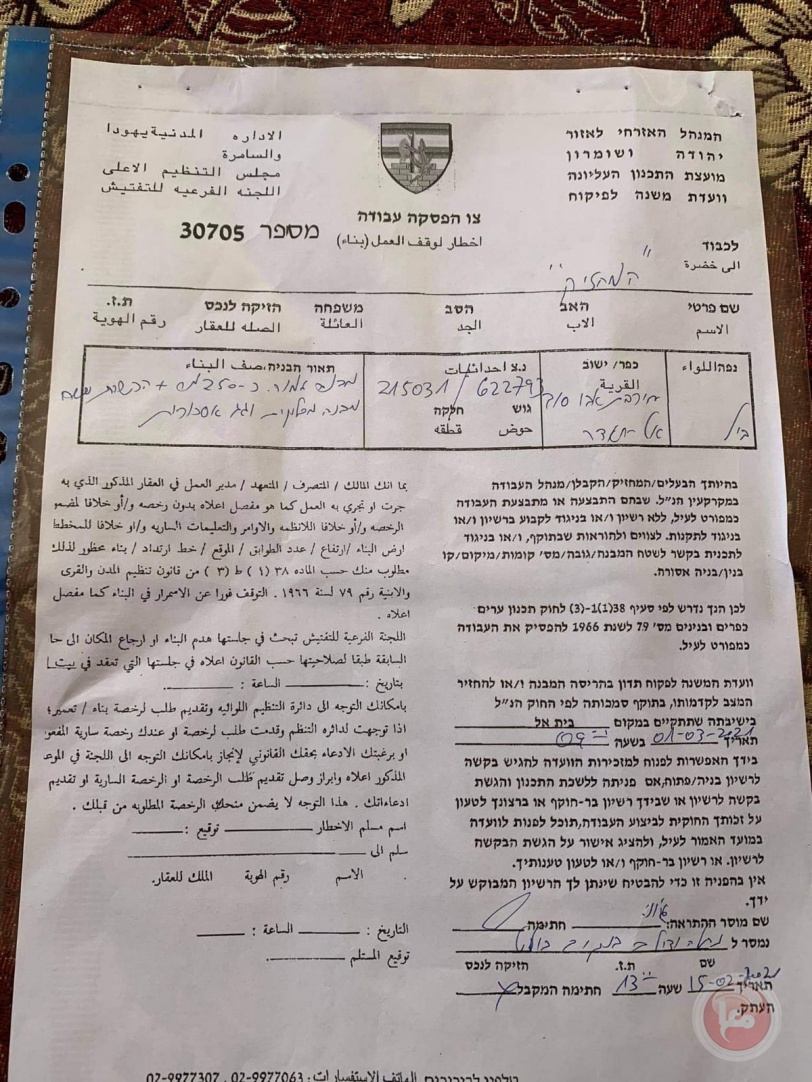 המנהל האזרחי לאזור
יהודה ושומרון
מועצת התכנון העליונה
וועדת משנה לפיקוח
الاداره المدنية يهودا
والسامرة
مجلس التنظيم الاعلى
اللجنه الفرعيه للتفتيش
צו הפסקה עבודה
اخطار لوقف العمل (بناء)
מספר 30705
לכבוד
الى حضرة
"המחזיק"
שם פרטי האב הסב משפחה הזיקה לנכס ת.ז.
الاسم الاب الجد العائلة الصله للعقار رقم الهوية
נפה اللواء
כפר/ ישוב
القرية
נ.צ احداثيات
215031 / 622793
גוש חלקה
حوض قطعه
תאור הבניה, صف البناء
בהיותך הבעלים/המחזיק/הקבלן/מנהל העבודה
במקרקעין הנ"ל. שבהם התבצעה או מתבצעת העבודה
כמפורט לעיל, ללא רשיון ו/או בניגוד לקבוע ברשיון ו/או
בניגוד לתקנות. לצווים ולהוראות שבתוקף, ו/או בניגוד
לתכנית בקשר לשטח המבנה/גובה/מס' קומות/מיקום/קו
בנין/בניה אסורה.
לכן הנך נדרש לפי סעיף 38(1)-(3) לחוק תכנון ערים
כפרים ובנינים מס' 79 לשנת 1966 להפסיק את העבודה
כמפורט לעיל.
וועדת המשנה לפקוח תדון בהריסה המבנה ו/או להחזיר
המצב לקדמותו, בתוקף סמכותה לפי החוק הנ"ל
בישיבתה שתתקיים במקום בית אל
תאריך 01-03-2021 בשעה 09
בידך האפשרות לפנות למזכירות הוועדה להגיש בקשה
לרשיון בניה/פתוח, אם פניתה ללשכת התכנון והגשת
בקשה לרשיון או שבידך רשיון בר-תוקף או ברצונך לטעון
על זכותך החוקית לביצוע העבודה, תוכל לפנות לוועדה
במועד האמור לעיל, ולהציג אישור על הגשת הבקשה
לרשיון. או רשיון בר-תוקף ו/או לטעון טענותיך.
אין בהפניה זו כדי להבטיח שינתן לך הרשיון המבוקש על
ידך.
שם מוסר ההתראה: חתימה
נמסר ל
שם ת.ז. הזיקה לנכס
תאריך 15-02-2021 שעה 13 חתימת המקבל
העתק.
بما انك المالك / المتصرف / المتعهد / مدير العمل في العقار المذكور الذي به
جرت او تجري به العمل كما هو مفصل اعلاه بدون رخصه و/أو خلافا لمضمو
الرخصه و/أو خلافا للانظمه والاوامر والتعليمات الساريه و/او خلافا للمخطط
ارض البناء /ارتفاع / عدد الطوابق / الموقع / خط ارتداد / بناء محظور لذلك
مطلوب منك حسب الماده ٣٨ (١) ط (٣) من قانون تنظيم المدن والقرى
والابنية رقم ٧٩ لسنة ١٩٦٦ . التوقف فورا عن الاستمرار في البناء كما مفصل
اعلاه .
اللجنة الفرعية للتفتيش تبحث في جلستها هدم البناء او ارجاع المكان الى حا
السابقة طبقا لصلاحيتها حسب القانون اعلاه في جلستها التي تعقد في بيت ا
بتاريخ : الساعة :
بامكانك التوجه الى دائرة التنظيم اللوائيه وتقديم طلب لرخصة بناء / تعمير؛
اذا توجهت لدائره التنظم وقدمت طلب لرخصة او عندك رخصة سارية المفعو
او برغبتك الادعاء بحقك القانوني لإنجاز بامكانك التوجه الى اللجنة في الموعد
المذكور اعلاه وابراز وصل تقديم طلب الرخصة او الرخصة السارية او تقديم
ادعاءاتك . هذا التوجه لا يضمن منحك الرخصة المطلوبه من قبلك .
اسم مسلم الاخطار توقيع :
سلم الى
الاسم رقم الهوية الملك للعقار.
التاريخ : الساعة :
توقيع المستلم
טלפון לבירורים الهاتف الاستفسارات : 02-9977063 , 02-9977307